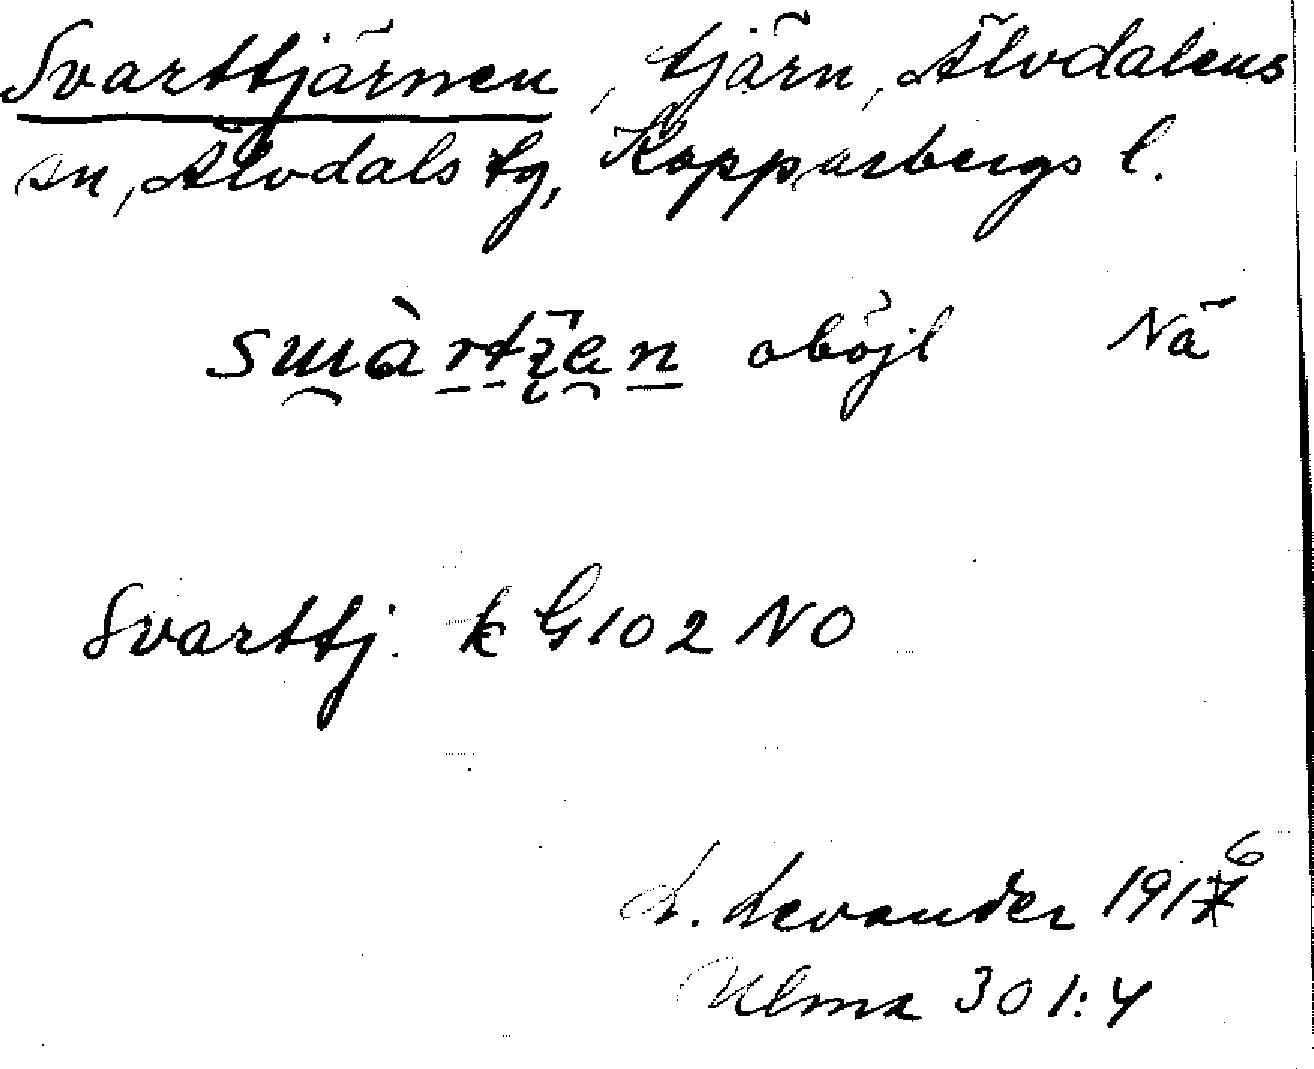 Svarttjärnen, tjärn, Älvdalens
sn, Älvdals tg, Kopparbergs l.
oböjl Nä
Svarttj. k G 102 NO
L. Levander 1916
Ulma 301:4